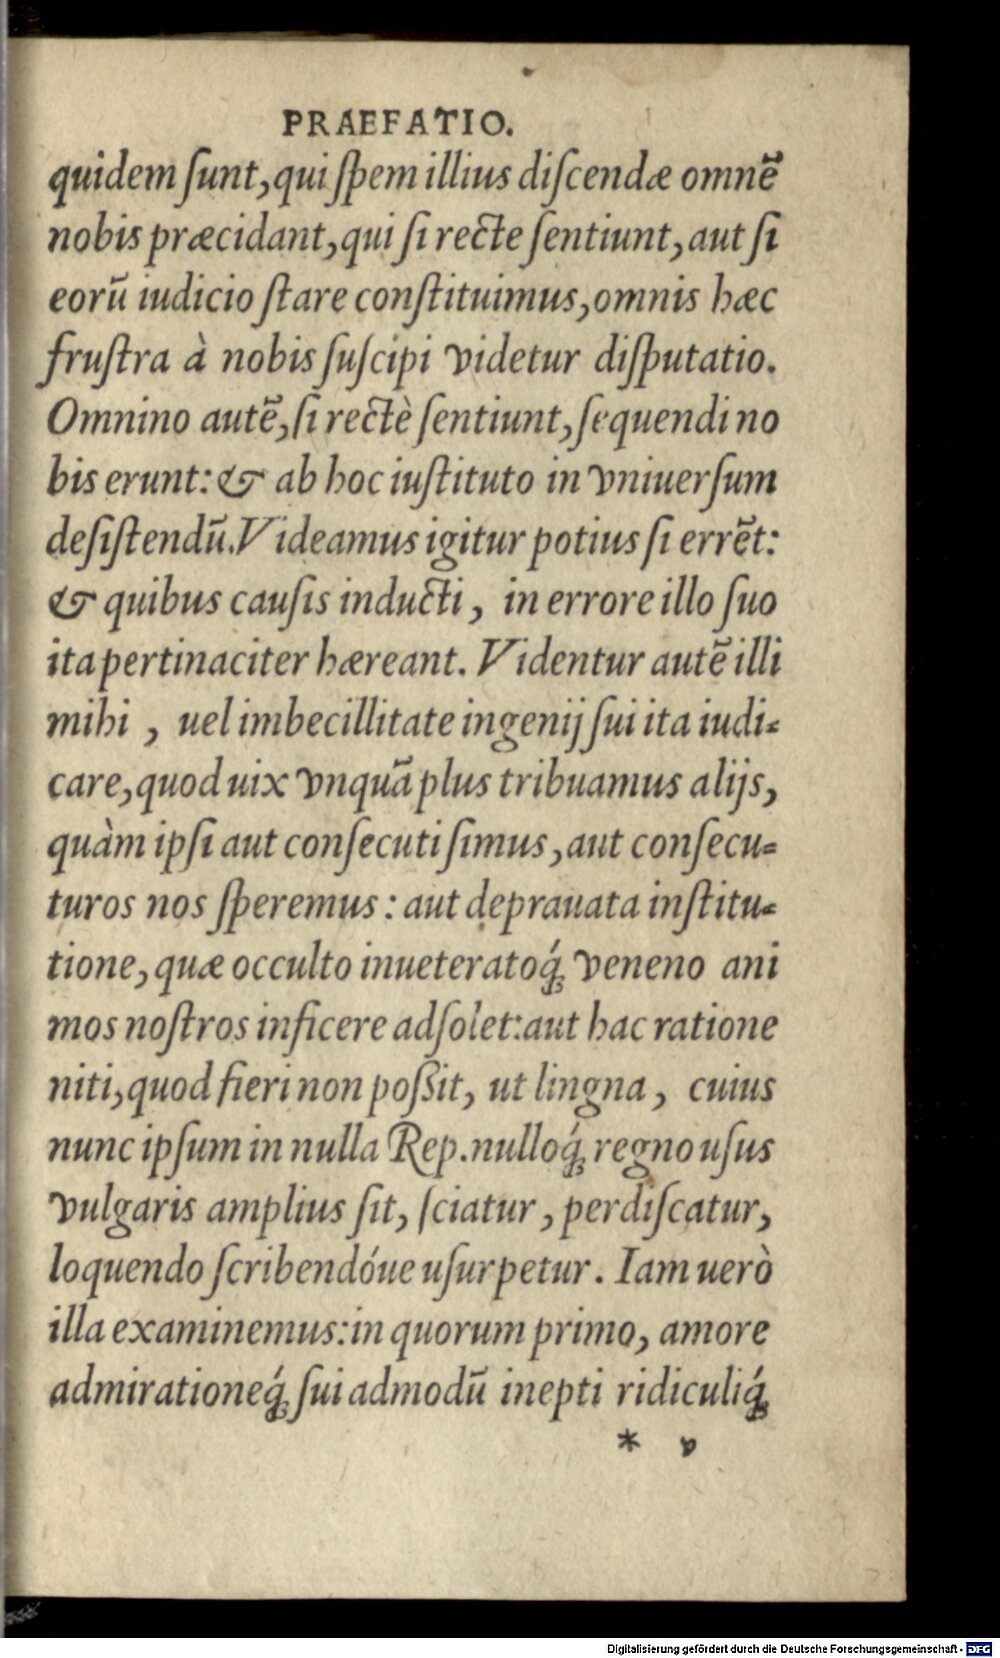 PRAEFATIO.
quidem ſunt, qui ſpem illius diſcendæ omnẽ
nobis præcidant, qui ſi recte ſentiunt, aut ſi
eorũ iudicio ſtare conſtituimus, omnis hæc
fruſtra à nobis ſuſcipi videtur diſputatio.
Omnino autẽ, ſi rectè ſentiunt, ſequendi no
bis erunt: & ab hoc iuſtituto in vniuerſum
deſiſtendũ. Videamus igitur potius ſi errẽt:
& quibus cauſis inducti, in errore illo ſuo
ita pertinaciter hæreant. Videntur autẽ illi
mihi, uel imbecillitate ingenij ſui ita iudi-
care, quod uix vnquã plus tribuamus alijs,
quàm ipſi aut conſecuti ſimus, aut conſecu-
turos nos ſperemus: aut deprauata inſtitu-
tione, quæ occulto inueteratoq́; veneno ani
mos noſtros inficere adſolet: aut hac ratione
niti, quod fieri non poßit, ut lingna, cuius
nunc ipſum in nulla Rep. nulloq́; regno uſus
vulgaris amplius ſit, ſciatur, perdiſcatur,
loquendo ſcribendóue uſurpetur. Iam uerò
illa examinemus: in quorum primo, amore
admirationeq́; ſui admodũ inepti ridiculiq́;
* v
Digitalisierung gefördert durch die Deutsche Forschungsgemeinschaft - DFG